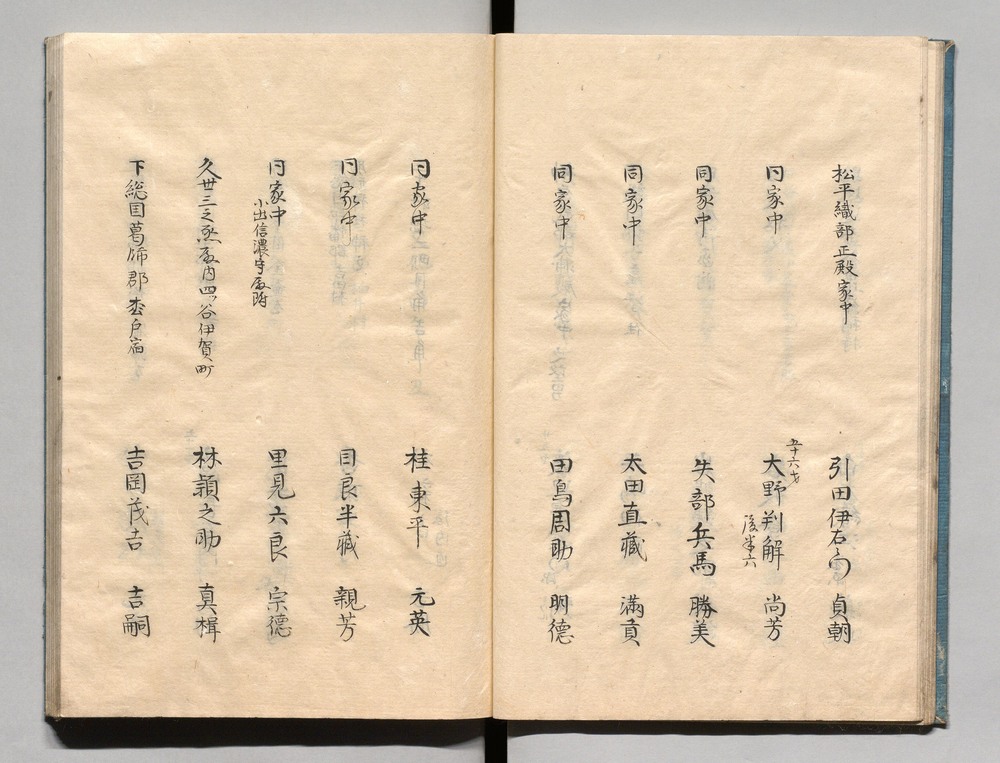 松平織部正殿家中
引田伊右衛門 貞朝
同家中
五十六才
大野判解 尚芳
後半六
同家中
矢部兵馬 勝美
同家中
太田直蔵 満負
同家中
田鳥周助 明徳
同家中
桂東平 元英
同家中
目良半蔵 親芳
同家中
小出信濃守殿附
里見六良 宗徳
久世三之烝殿内四ッ谷伊賀町
林頴之助 真楫
下総国葛飾郡松戸宿
吉岡茂吉 吉嗣